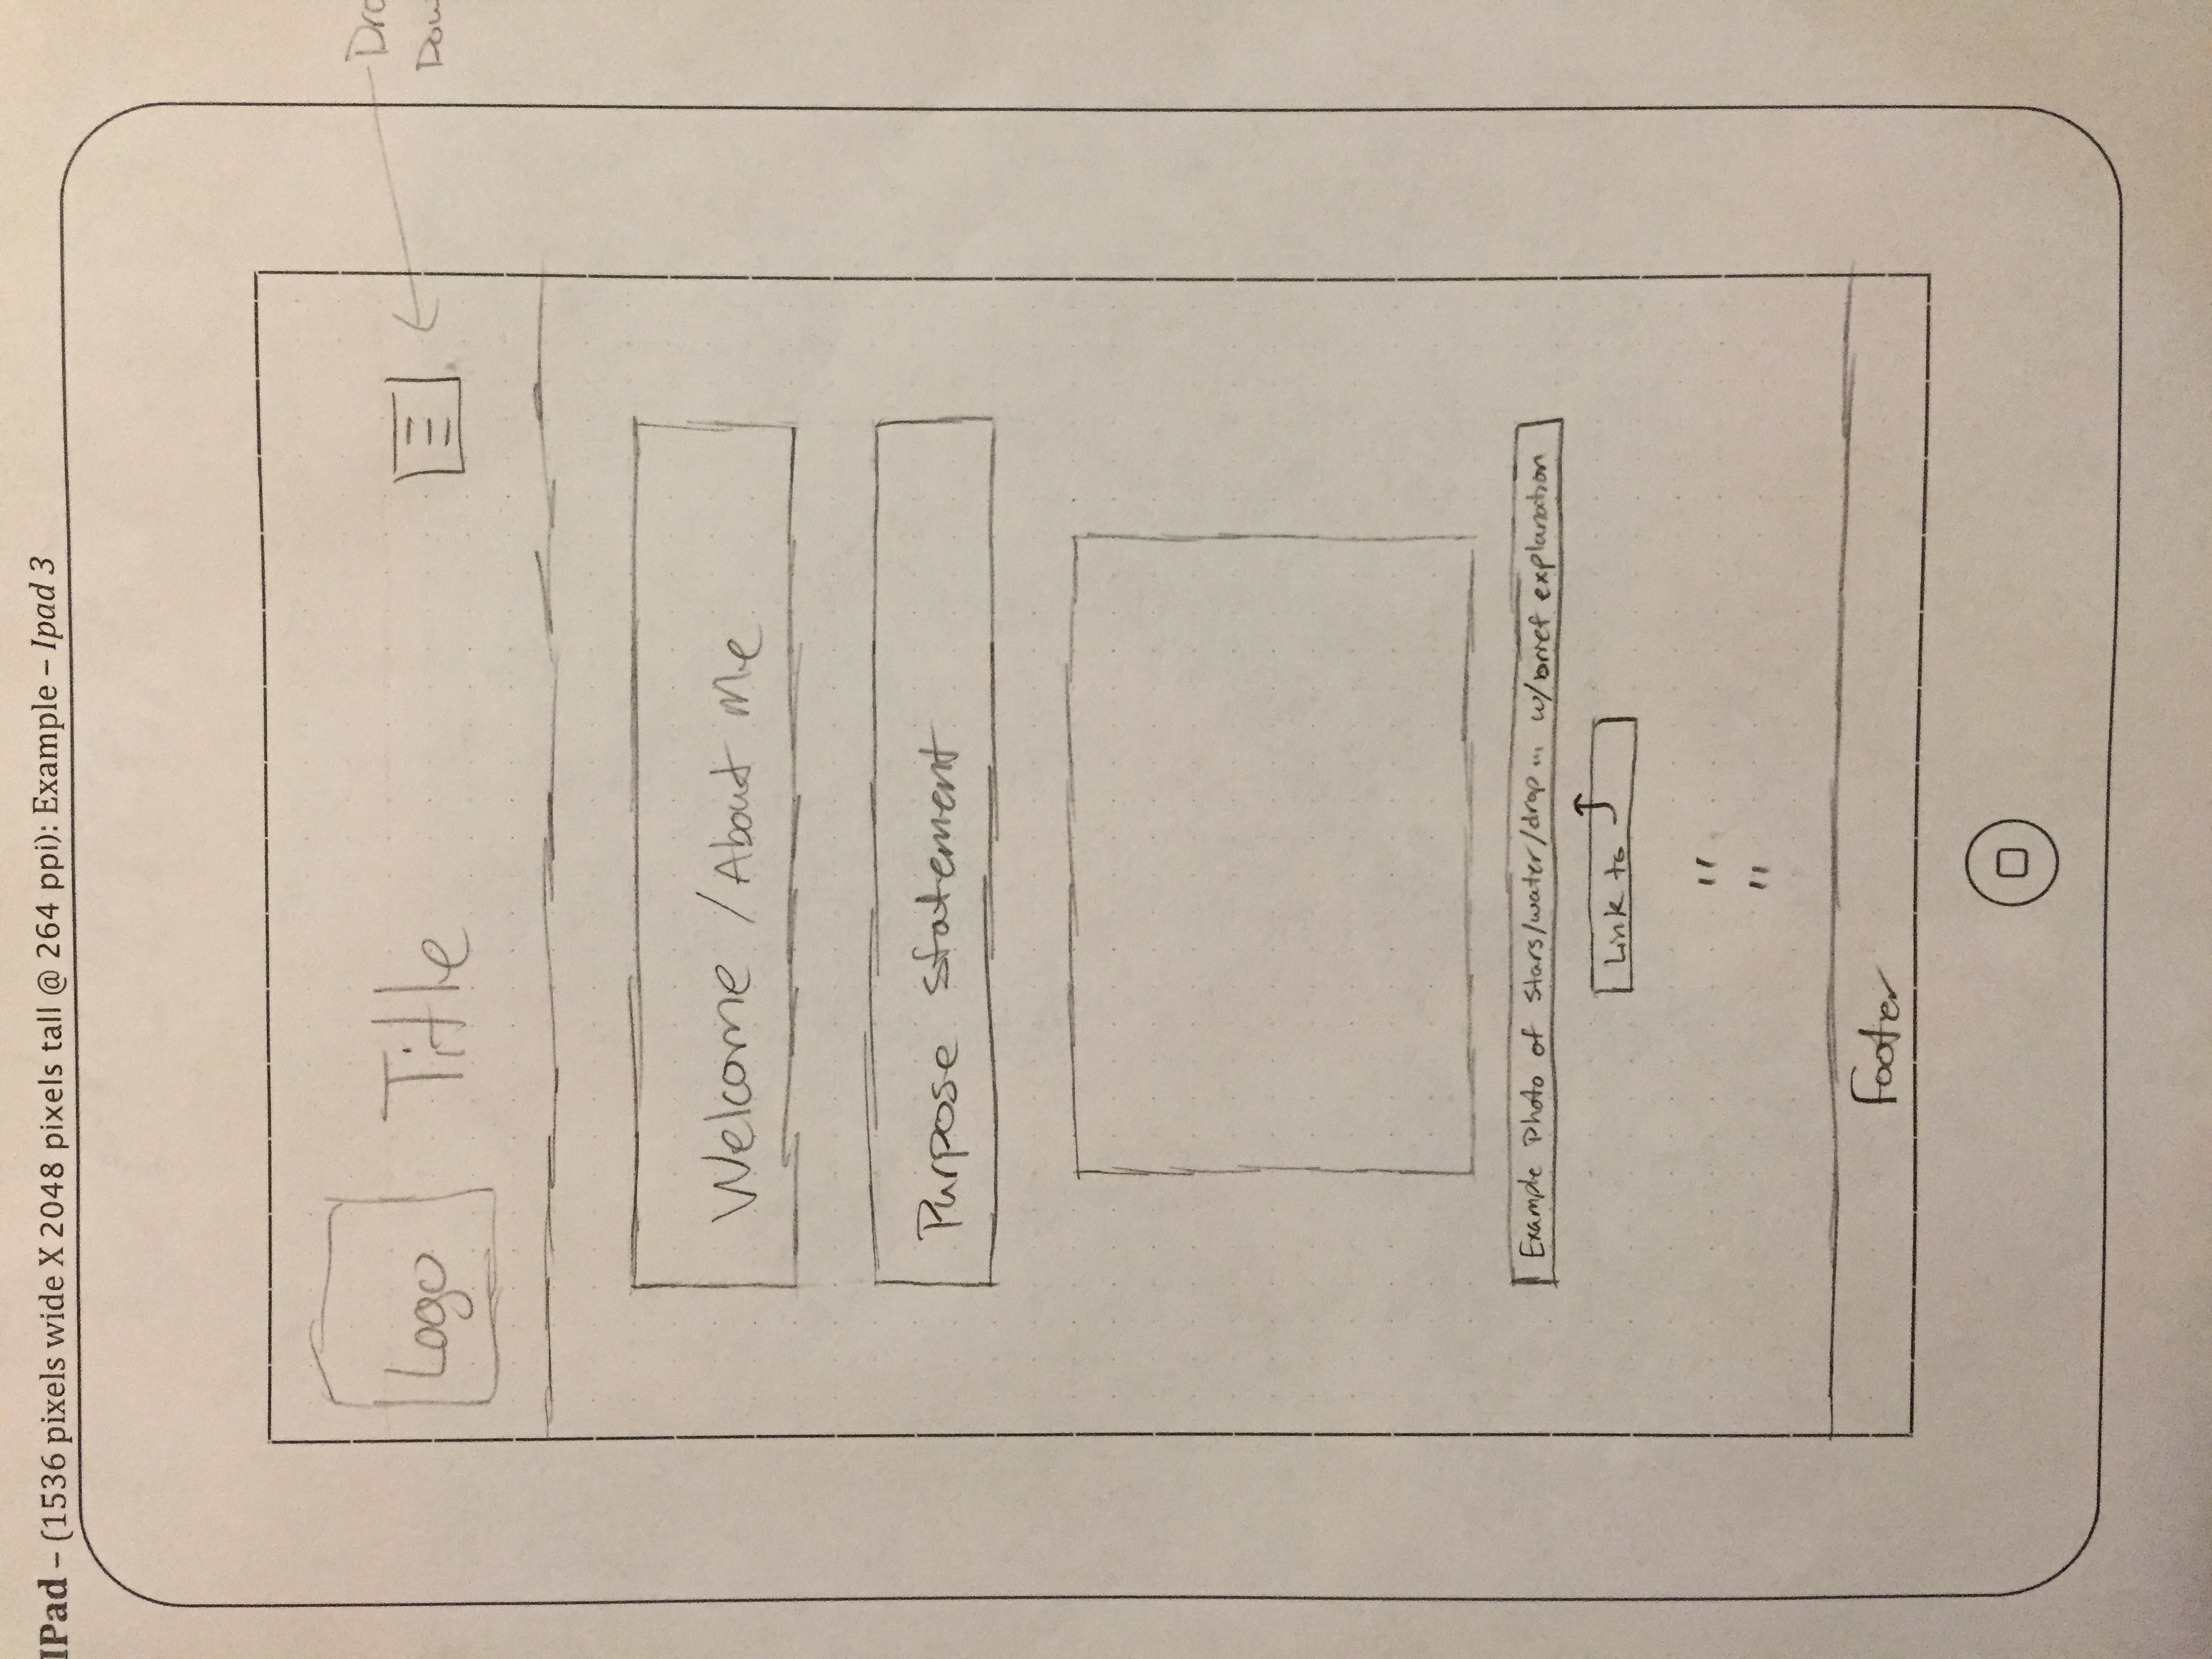 IPad – (1536 pixels wide X 2048 pixels tall @ 264 ppi): Example – Ipad 3
Logo
Title
Welcome / About Me
Purpose Statement
Example Photo of Stars/water/drop ... w/brief explanation
Link to
" "
Footer